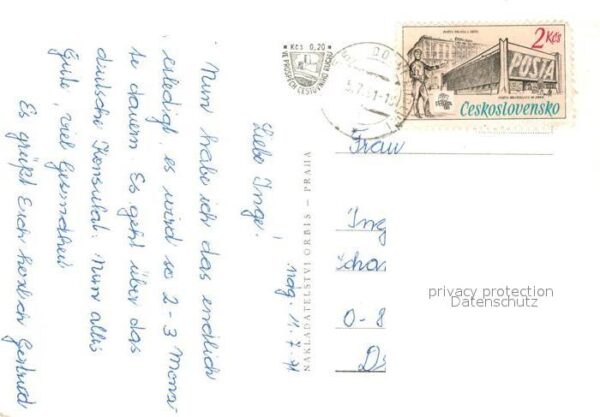 Kčs 0,20
VE PROSPĚCH CESTOVNÍHO RUCHU
2 Kčs
POŠTA
Československo
Liebe Inge!
Nun habe ich das endlich
erledigt, es wird so 2-3 Mona
te dauern. Es geht über das
deutsche Konsulat. Nun alles
Gute, viel Gesundheit
Es grüßt Euch herzlich Gertrud
NAKLADATELSTVÍ ORBIS – PRAHA
Frau
Ing
Scha
O-8
privacy protection
Datenschutz